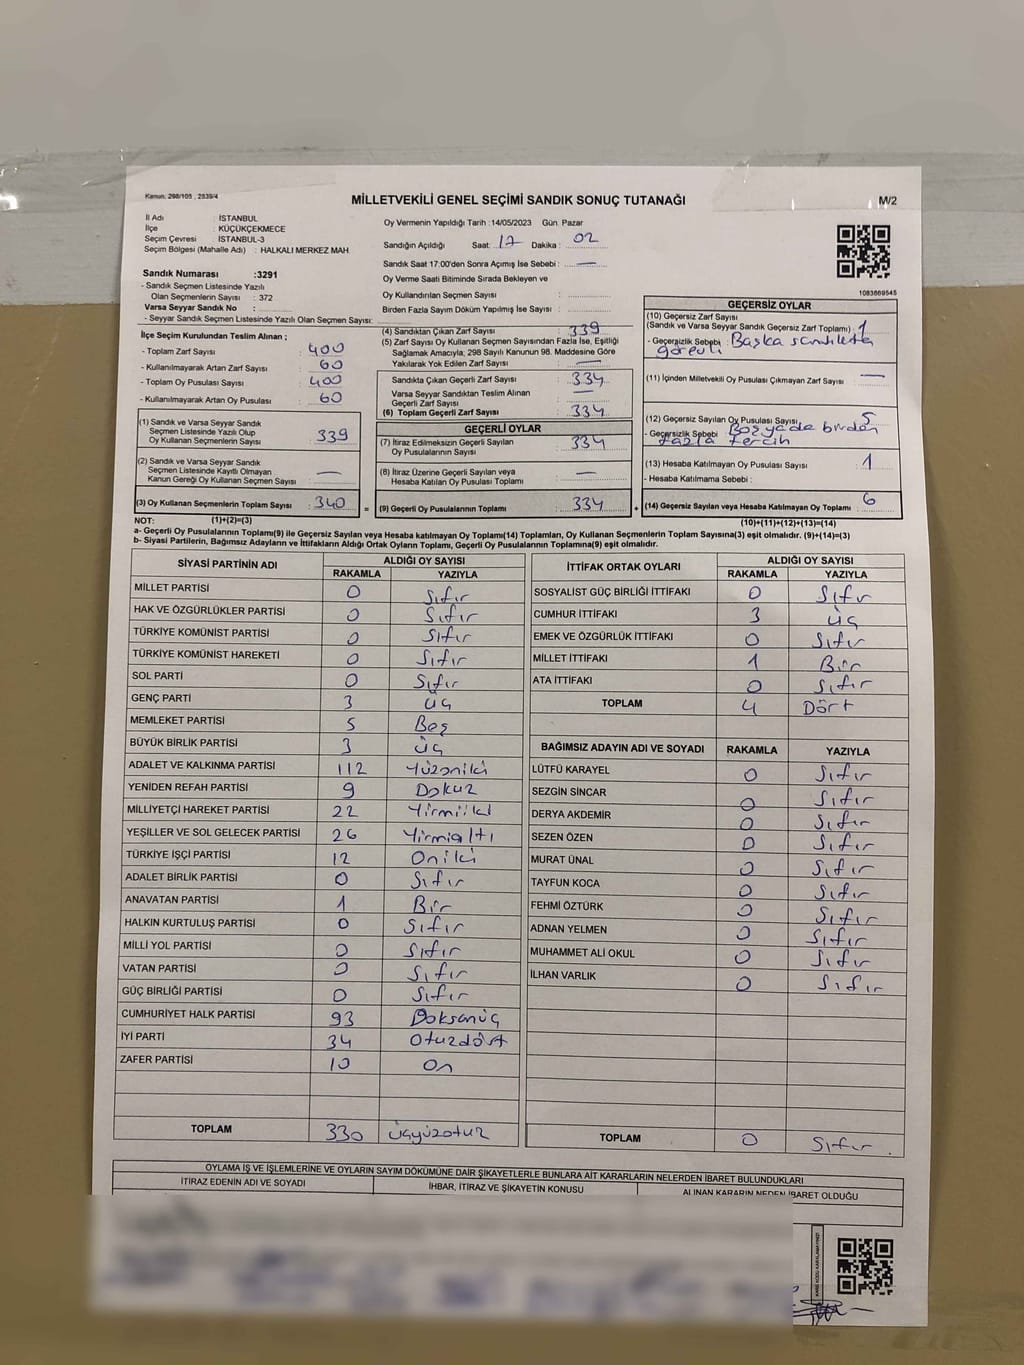 Kanun: 298/105 , 2839/4
MİLLETVEKİLİ GENEL SEÇİMİ SANDIK SONUÇ TUTANAĞI
M/2
İl Adı : İSTANBUL
İlçe : KÜÇÜKÇEKMECE
Seçim Çevresi : İSTANBUL-3
Seçim Bölgesi (Mahalle Adı) : HALKALI MERKEZ MAH.
Oy Vermenin Yapıldığı Tarih : 14/05/2023 Gün Pazar
Sandığın Açıldığı Saat: 17 Dakika : 02
Sandık Saat 17:00'den Sonra Açılmış İse Sebebi : —
Oy Verme Saati Bitiminde Sırada Bekleyen ve
Oy Kullandırılan Seçmen Sayısı
Birden Fazla Sayım Döküm Yapılmış İse Sayısı :
1083669545
Sandık Numarası :3291
- Sandık Seçmen Listesinde Yazılı
Olan Seçmenlerin Sayısı : 372
Varsa Seyyar Sandık No :
- Seyyar Sandık Seçmen Listesinde Yazılı Olan Seçmen Sayısı:
İlçe Seçim Kurulundan Teslim Alınan ;
- Toplam Zarf Sayısı 400
- Kullanılmayarak Artan Zarf Sayısı : 60
- Toplam Oy Pusulası Sayısı : 400
- Kullanılmayarak Artan Oy Pusulası : 60
(1) Sandık ve Varsa Seyyar Sandık
Seçmen Listesinde Yazılı Olup
Oy Kullanan Seçmenlerin Sayısı 339
(2) Sandık ve Varsa Seyyar Sandık
Seçmen Listesinde Kayıtlı Olmayan
Kanun Gereği Oy Kullanan Seçmen Sayısı —
(3) Oy Kullanan Seçmenlerin Toplam Sayısı 340 =
(4) Sandıktan Çıkan Zarf Sayısı 339
(5) Zarf Sayısı Oy Kullanan Seçmen Sayısından Fazla İse, Eşitliği
Sağlamak Amacıyla; 298 Sayılı Kanunun 98. Maddesine Göre
Yakılarak Yok Edilen Zarf Sayısı : —
Sandıkta Çıkan Geçerli Zarf Sayısı 334
Varsa Seyyar Sandıktan Teslim Alınan
Geçerli Zarf Sayısı : —
(6) Toplam Geçerli Zarf Sayısı : 334
GEÇERLİ OYLAR
(7) İtiraz Edilmeksizin Geçerli Sayılan
Oy Pusulalarının Sayısı: 334
(8) İtiraz Üzerine Geçerli Sayılan veya
Hesaba Katılan Oy Pusulası Toplamı —
(9) Geçerli Oy Pusulalarının Toplamı : 334 +
GEÇERSİZ OYLAR
(10) Geçersiz Zarf Sayısı
(Sandık ve Varsa Seyyar Sandık Geçersiz Zarf Toplamı) : 1
- Geçersizlik Sebebi : Başka sandıkta
görevli
(11) İçinden Milletvekili Oy Pusulası Çıkmayan Zarf Sayısı : —
(12) Geçersiz Sayılan Oy Pusulası Sayısı : 5
- Geçersizlik Sebebi : birden
fazla tercih
(13) Hesaba Katılmayan Oy Pusulası Sayısı 1
- Hesaba Katılmama Sebebi :
(14) Geçersiz Sayılan veya Hesaba Katılmayan Oy Toplamı 6
NOT: (1)+(2)=(3) (10)+(11)+(12)+(13)=(14)
a- Geçerli Oy Pusulalarının Toplamı(9) ile Geçersiz Sayılan veya Hesaba katılmayan Oy Toplamı(14) Toplamları, Oy Kullanan Seçmenlerin Toplam Sayısına(3) eşit olmalıdır. (9)+(14)=(3)
b- Siyasi Partilerin, Bağımsız Adayların ve İttifakların Aldığı Ortak Oyların Toplamı, Geçerli Oy Pusulalarının Toplamına(9) eşit olmalıdır.
SİYASİ PARTİNİN ADI ALDIĞI OY SAYISI
RAKAMLA YAZIYLA
MİLLET PARTİSİ 0 Sıfır
HAK VE ÖZGÜRLÜKLER PARTİSİ 0 Sıfır
TÜRKİYE KOMÜNİST PARTİSİ 0 Sıfır
TÜRKİYE KOMÜNİST HAREKETİ 0 Sıfır
SOL PARTİ 0 Sıfır
GENÇ PARTİ 3 üç
MEMLEKET PARTİSİ 5 Beş
BÜYÜK BİRLİK PARTİSİ 3 üç
ADALET VE KALKINMA PARTİSİ 112 Yüzoniki
YENİDEN REFAH PARTİSİ 9 Dokuz
MİLLİYETÇİ HAREKET PARTİSİ 22 Yirmiiki
YEŞİLLER VE SOL GELECEK PARTİSİ 26 Yirmialtı
TÜRKİYE İŞÇİ PARTİSİ 12 Oniki
ADALET BİRLİK PARTİSİ 0 Sıfır
ANAVATAN PARTİSİ 1 Bir
HALKIN KURTULUŞ PARTİSİ 0 Sıfır
MİLLİ YOL PARTİSİ 0 Sıfır
VATAN PARTİSİ 0 Sıfır
GÜÇ BİRLİĞİ PARTİSİ 0 Sıfır
CUMHURİYET HALK PARTİSİ 93 Doksanüç
İYİ PARTİ 34 Otuzdört
ZAFER PARTİSİ 10 On
TOPLAM 330 üçyüzotuz
İTTİFAK ORTAK OYLARI ALDIĞI OY SAYISI
RAKAMLA YAZIYLA
SOSYALİST GÜÇ BİRLİĞİ İTTİFAKI 0 Sıfır
CUMHUR İTTİFAKI 3 üç
EMEK VE ÖZGÜRLÜK İTTİFAKI 0 Sıfır
MİLLET İTTİFAKI 1 Bir
ATA İTTİFAKI 0 Sıfır
TOPLAM 4 Dört
BAĞIMSIZ ADAYIN ADI VE SOYADI RAKAMLA YAZIYLA
LÜTFÜ KARAYEL 0 Sıfır
SEZGİN SİNCAR 0 Sıfır
DERYA AKDEMİR 0 Sıfır
SEZEN ÖZEN 0 Sıfır
MURAT ÜNAL 0 Sıfır
TAYFUN KOCA 0 Sıfır
FEHMİ ÖZTÜRK 0 Sıfır
ADNAN YELMEN 0 Sıfır
MUHAMMET ALİ OKUL 0 Sıfır
İLHAN VARLIK 0 Sıfır
TOPLAM 0 Sıfır
OYLAMA İŞ VE İŞLEMLERİNE VE OYLARIN SAYIM DÖKÜMÜNE DAİR ŞİKAYETLERLE BUNLARA AİT KARARLARIN NELERDEN İBARET BULUNDUKLARI
İTİRAZ EDENİN ADI VE SOYADI
İHBAR, İTİRAZ VE ŞİKAYETİN KONUSU
ALINAN KARARIN NEDEN İBARET OLDUĞU